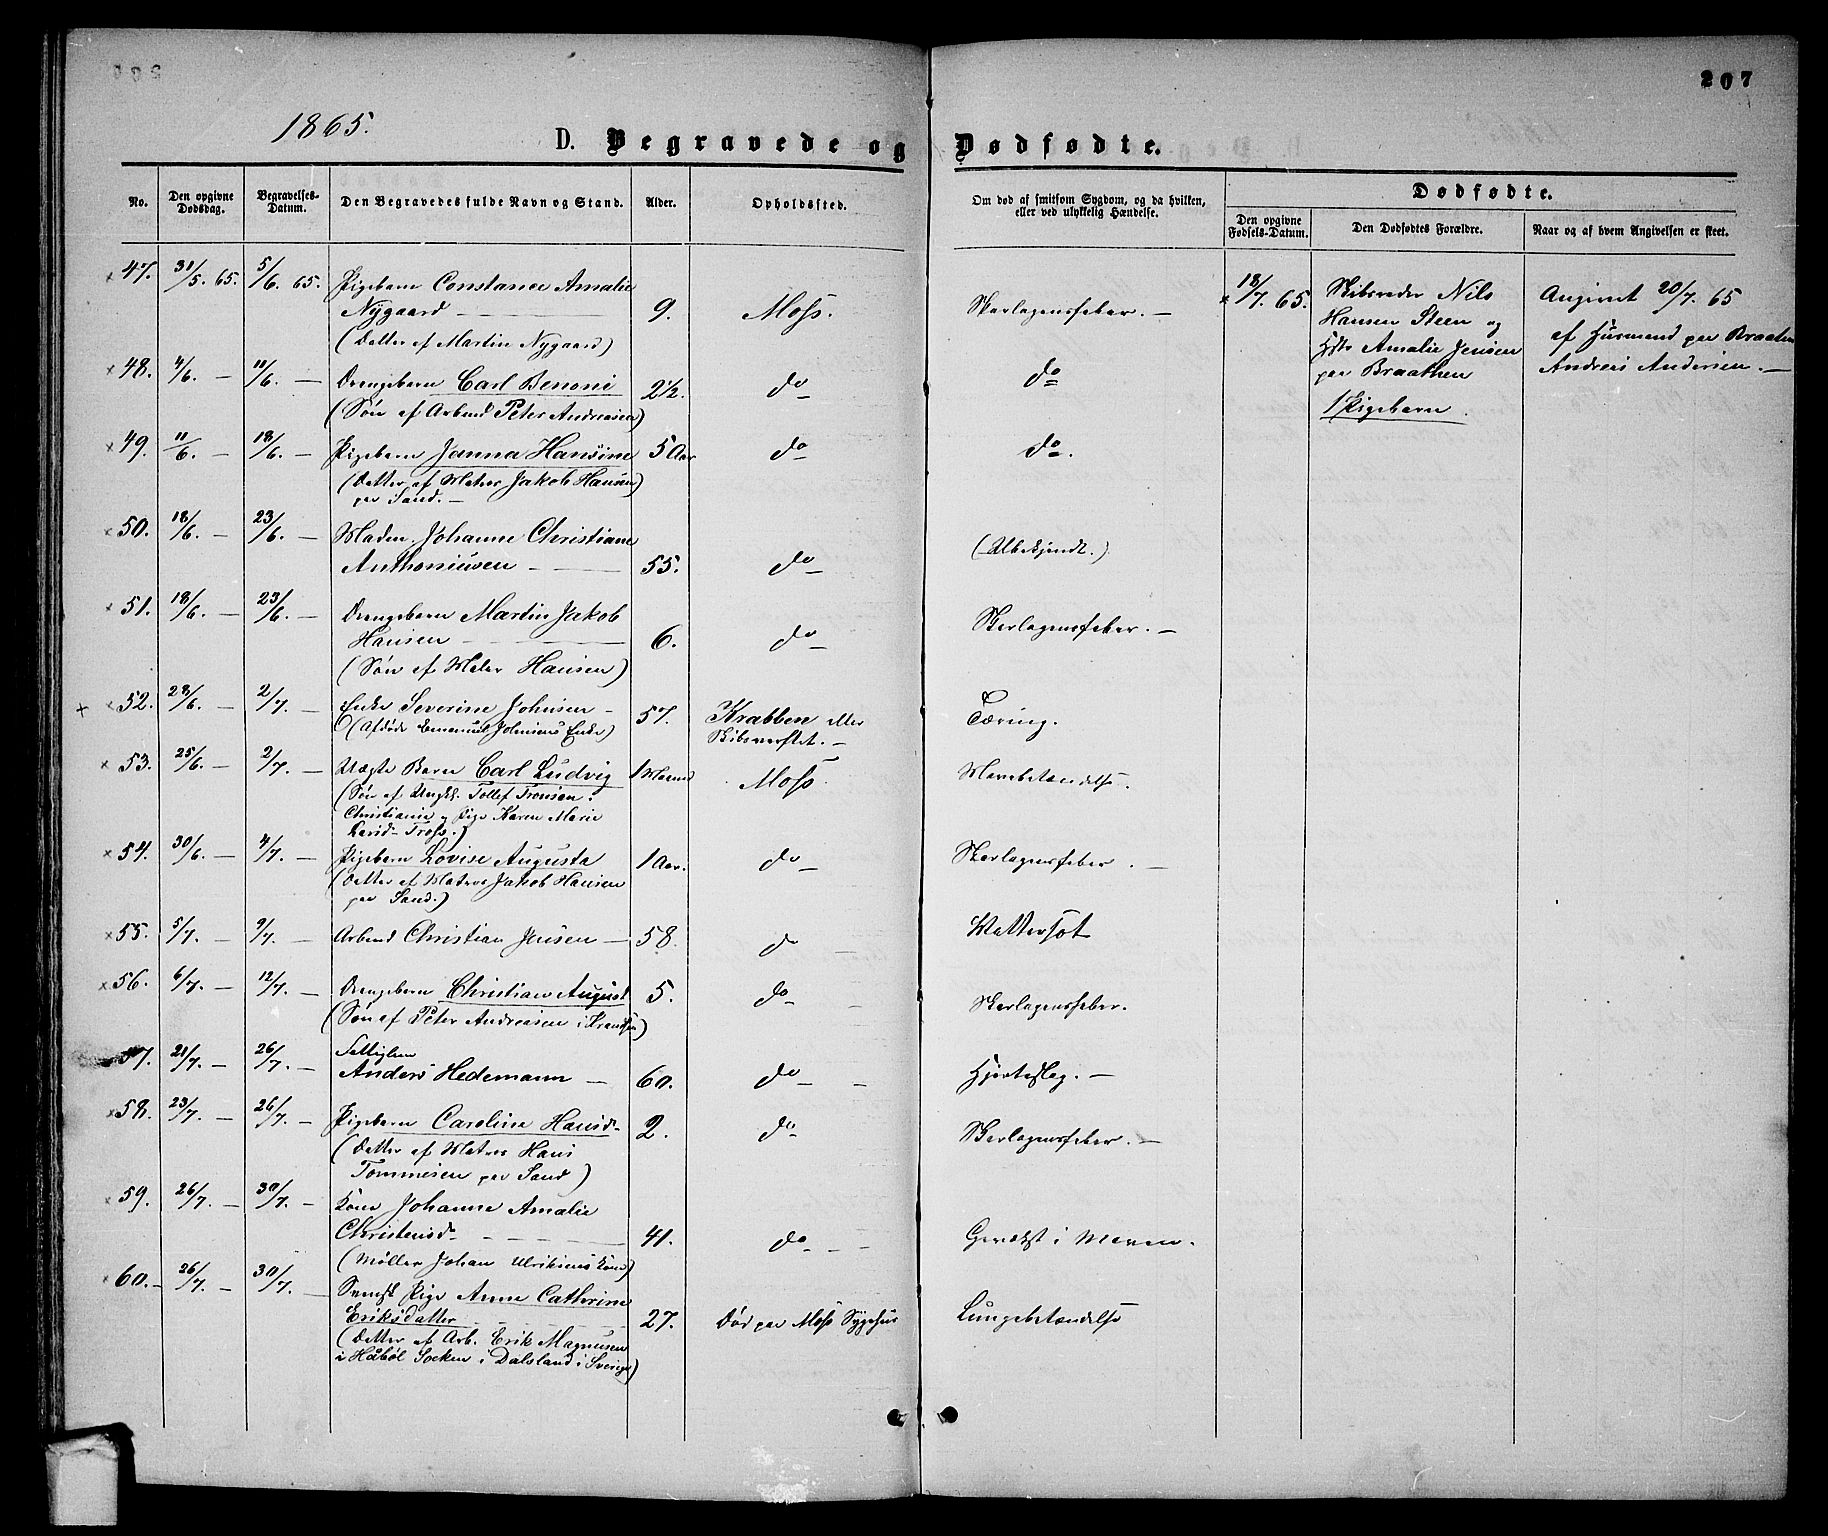 207
1865.
D. Begravede og Dødfødte.
No.
Den opgivne Dødsdag.
Begravelses-Datum.
Den Begravedes fulde Navn og Stand.
Alder.
Opholdssted.
Om død af smitsom Sygdom, og da hvilken,
eller ved ulykkelig Hændelse.
Dødfødte.
Den opgivne Fødsels-Datum.
Den Dødfødtes Forældre.
Naar og af hvem Angivelsen er skeet.
× 47. 31/5. 65. 5/6. 65. Pigebarn Constance Amalie
Nygaard — 9. Moss. Skarlagensfeber. —
(Datter af Martin Nygaard)
× 48. 4/6. — 11/6. — Drengebarn Carl Benoni 2½. do — do
(Søn af Arbmd Peter Andreasen)
× 49. 11/6. — 18/6. — Pigebarn Janna Hansine 5 Aar do — do.
(Datter af Matros Jakob Hansen)
paa Sand. —
× 50. 18/6. — 23/6. — Madm. Johanne Christiane
Anthonisen — 55. do — (Ubekjendt.)
× 51. 18/6. — 23/6. — Drengebarn Martin Jakob
Hansen — 6. do — Skarlagensfeber. —
(Søn af Maler Hansen)
+ × 52. 28/6. — 2/7. — Enke Severine Johnsen — 57. Krabben eller Tæring.
(Afdøde Emanuel Johnsens Enke) Skibsverftet. —
× 53. 25/6. — 2/7. — Uægte Barn Carl Ludvig 1 Maaned Moss. Mavebetændelse.
(Søn af Ungk. Tollef Tronsen.
Christiania og Pige Karen Marie
Larsd. Moss.)
× 54. 30/6. — 4/7. — Pigebarn Lovise Augusta 1 Aar. do — Skarlagensfeber. —
(Datter af Matros Jakob Hansen
paa Sand.)
× 55. 5/7. — 9/7. — Arbmd Christian Jensen — 58. do — Wattersot
× 56. 6/7. — 12/7. — Drengebarn Christian August 5. do — — Skarlagensfeber.
(Søn af Peter Andreasen i )
57. 21/7. — 26/7. — Fattiglem
Anders Hedemann — 60. do — — Hjerteslag. —
× 58. 23/7. — 26/7. — Pigebarn Caroline Hansd. 2. do — Skarlagensfeber. —
(Datter af Matros Hans
Tommesen paa Sand)
× 59. 26/7. — 30/7. — Kone Johanne Amalie
Christensd. — 41. do — — Gevækst i Maven.
(Møller Johan Ulriksens Kone)
× 60. — 26/7. — 30/7. — Svensk Pige Anne Cathrine
Eriksdatter — 27. Død paa Moss Sygehus Lungebetændelse
(Datter af Arb. Erik Magnusen
i Håbol Socken i Dalsland i Sverige)
× 18/7. 65. Skibsreder Nils Angivet 20/7. 65
Hansen Steen og af Husmand paa Braaten
Hstr Amalie Jensen Andreas Andersen. —
paa Braathen
1 Pigebarn.